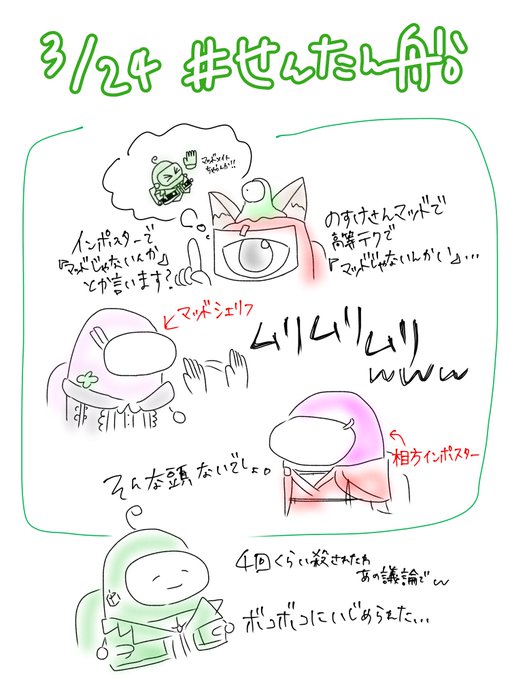 3/24 #せんたん船
マッドメイト
ちゃうんか!!
のすけさんマッドで
高等テクで
『マッドじゃないんかい』...
インポスターで
『マッドじゃないんか』
とか言います?
マッドシェリフ
ムリムリムリ
www
相方インポスター
そんな頭ないでしょ。
4回くらい殺されたわ
あの議論でw
ボコボコにいじめられた...